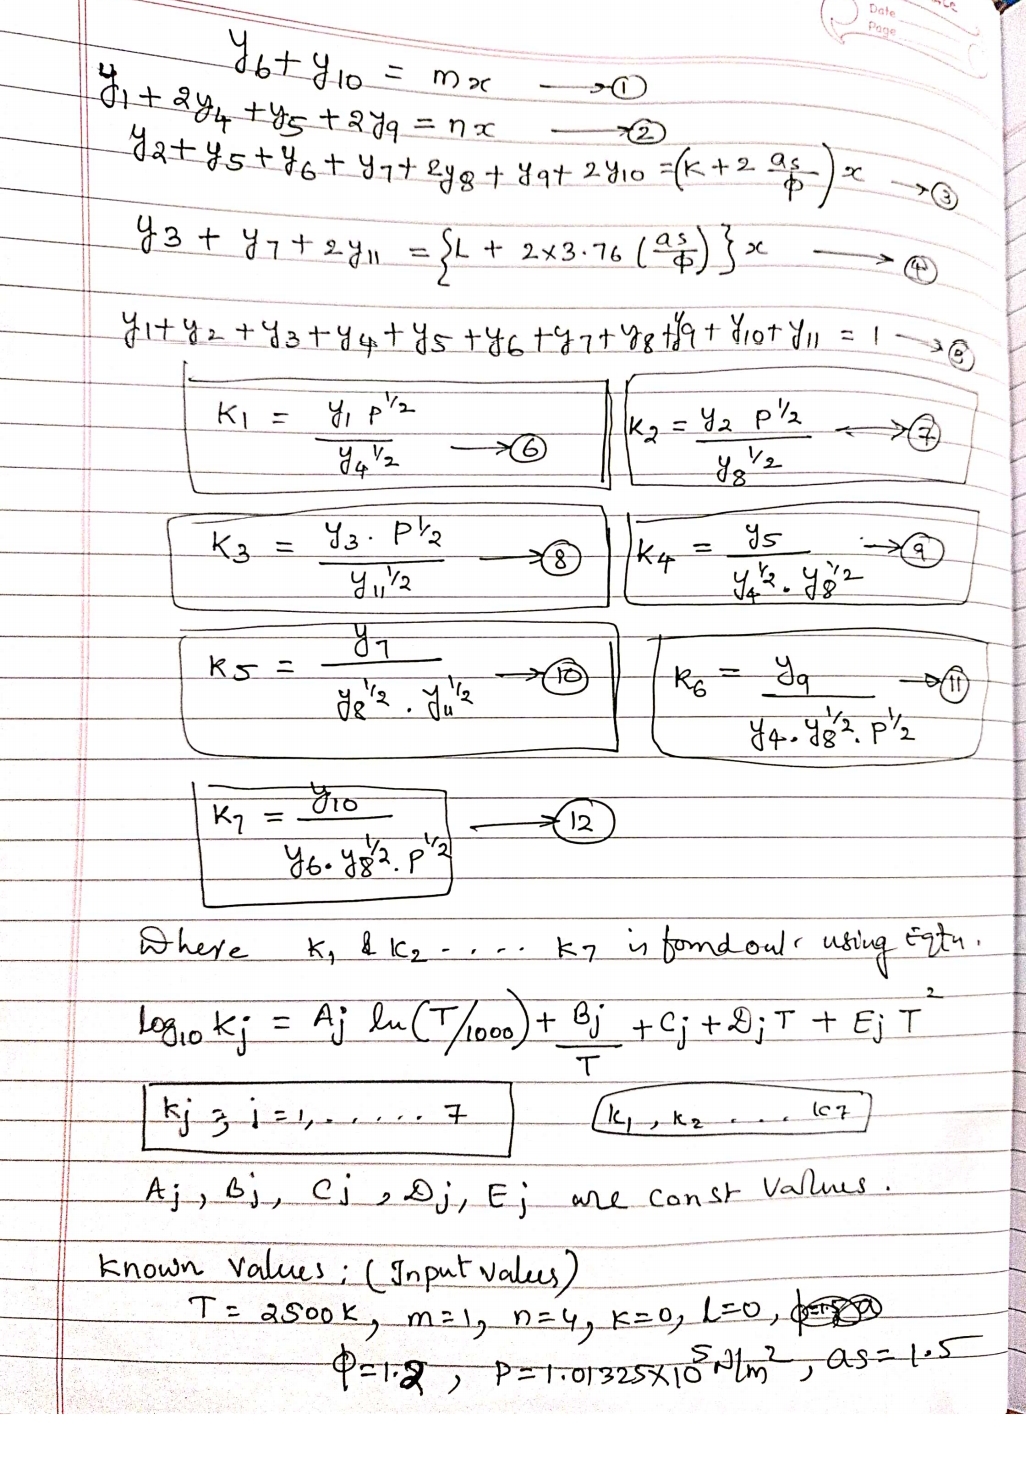 Date
Page
y6 + y10 = mx → ①
y1 + 2y4 + y5 + 2y9 = nx → ②
y2 + y5 + y6 + y7 + 2y8 + y9 + 2y10 = (K + 2 as/ϕ) x → ③
y3 + y7 + 2y11 = {L + 2×3.76 (as/ϕ)} x → ④
y1 + y2 + y3 + y4 + y5 + y6 + y7 + y8 + y9 + y10 + y11 = 1 → ⑤
K1 = y1 P^1/2 / y4^1/2 → ⑥ K2 = y2 P^1/2 / y8^1/2 ↔ ⑦
K3 = y3 . P^1/2 / y11^1/2 → ⑧ K4 = y5 / y4^1/2 . y8^1/2 → ⑨
K5 = y7 / y8^1/2 . y11^1/2 → ⑩ K6 = y9 / y4 . y8^1/2 . P^1/2 → ⑪
K7 = y10 / y6 . y8^1/2 . P^1/2 → ⑫
Where K1 & K2 - . . . K7 is found out using Eqtn.
log10 Kj = Aj ln(T/1000) + Bj/T + Cj + DjT + Ej T^2
Kj ⇒ j = 1, . . . . . . 7 K1, K2 . . . . K7
Aj, Bj, Cj, Dj, Ej are const Values.
Known values : (Input values)
T = 2500K, m=1, n=4, K=0, L=0,
ϕ=1.2, P=1.01325×10^5 N/m^2, as=1.5